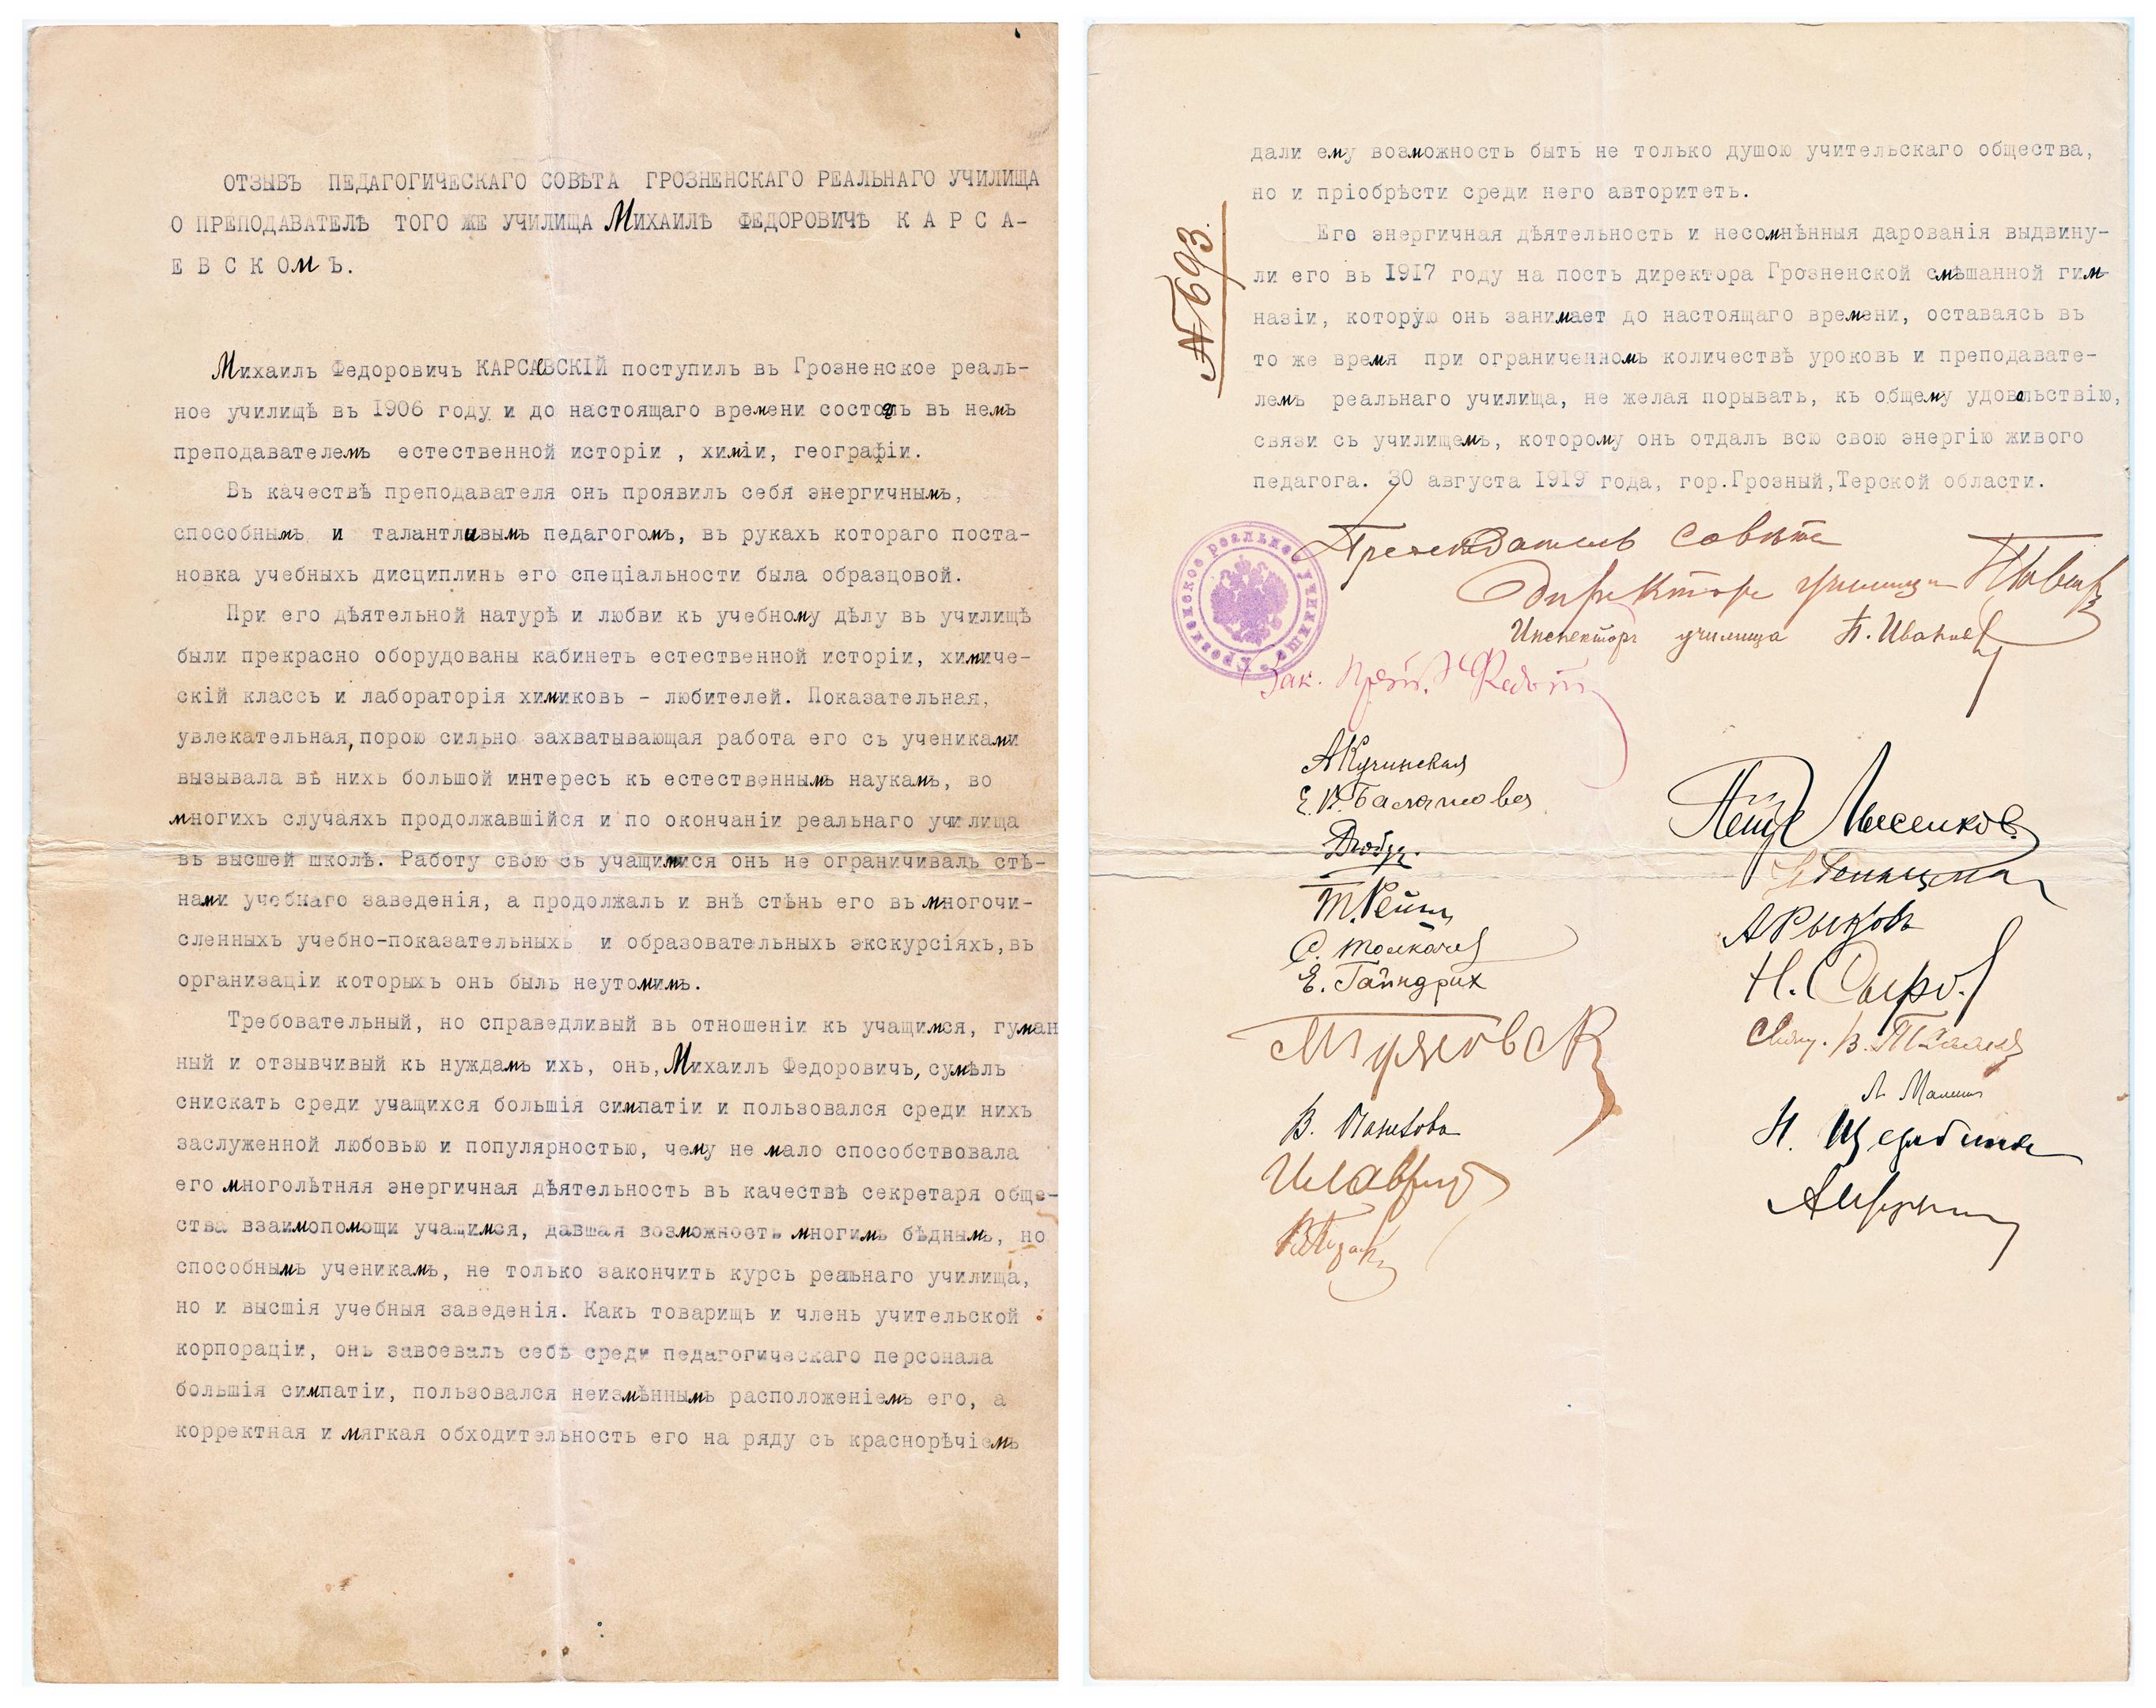 ОТЗЫВЪ ПЕДАГОГИЧЕСКАГО СОВѢТА ГРОЗНЕНСКАГО РЕАЛЬНАГО УЧИЛИЩА
О ПРЕПОДАВАТЕЛѢ ТОГО ЖЕ УЧИЛИЩА МИХАИЛѢ ФЕДОРОВИЧѢ К А Р С А -
Е В С К О М Ъ.
Михаилъ Федоровичъ КАРСАЕВСКІЙ поступилъ въ Грозненское реаль-
ное училищѣ въ 1906 году и до настоящаго времени состоялъ въ немъ
преподавателемъ естественной исторіи , химіи, географіи.
Въ качествѣ преподавателя онъ проявилъ себя энергичнымъ,
способнымъ и талантливымъ педагогомъ, въ рукахъ котораго поста-
новка учебныхъ дисциплинъ его спеціальности была образцовой.
При его дѣятельной натурѣ и любви къ учебному дѣлу въ училищѣ
были прекрасно оборудованы кабинетъ естественной исторіи, химиче-
скій классъ и лабораторія химиковъ - любителей. Показательная,
увлекательная, порою сильно захватывающая работа его съ учениками
вызывала въ нихъ большой интересъ къ естественнымъ наукамъ, во
многихъ случаяхъ продолжавшійся и по окончаніи реальнаго училища
въ высшей школѣ. Работу свою съ учащимися онъ не ограничивалъ стѣ-
нами учебнаго заведенія, а продолжалъ и внѣ стѣнъ его въ многочи-
сленныхъ учебно-показательныхъ и образовательныхъ экскурсіяхъ, въ
организаціи которыхъ онъ былъ неутомимъ.
Требовательный, но справедливый въ отношеніи къ учащимся, гуман
ный и отзывчивый къ нуждамъ ихъ, онъ, Михаилъ Федоровичъ, сумѣлъ
снискать среди учащихся большія симпатіи и пользовался среди нихъ
заслуженной любовью и популярностью, чему не мало способствовала
его многолѣтняя энергичная дѣятельность въ качествѣ секретаря обще-
ства взаимопомощи учащимся, давшая возможность многимъ бѣднымъ, но
способнымъ ученикамъ, не только закончить курсъ реальнаго училища,
но и высшія учебныя заведенія. Какъ товарищъ и членъ учительской
корпораціи, онъ завоевалъ себѣ среди педагогическаго персонала
большія симпатіи, пользовался неизмѣннымъ расположеніемъ его, а
корректная и мягкая обходительность его на ряду съ краснорѣчіемъ
дали ему возможность быть не только душою учительскаго общества,
но и пріобрѣсти среди него авторитетъ.
№ 693.
Его энергичная дѣятельность и несомнѣнныя дарованія выдвину-
ли его въ 1917 году на постъ директора Грозненской смѣшанной гим-
назіи, которую онъ занимает до настоящаго времени, оставаясь въ
то же время при ограниченномъ количествѣ уроковъ и преподавате-
лемъ реальнаго училища, не желая порывать, къ общему удовольствію,
связи съ училищемъ, которому онъ отдалъ всю свою энергію живого
педагога. 30 августа 1919 года, гор.Грозный,Терской области.
Предсѣдатель совѣта
Директоръ училища
Инспекторъ училища П. Иванов
Грозненское реальное училище
Зак. Прот.
А Кучинская
Е. В. Балашова
Т. Рейш
С. Толкачев
Е. Гайндрих
В. Панкова
Лысенков
А Рыковъ
Н. Сыров
Свящ. В.
Л. Малин
Н. Щербина